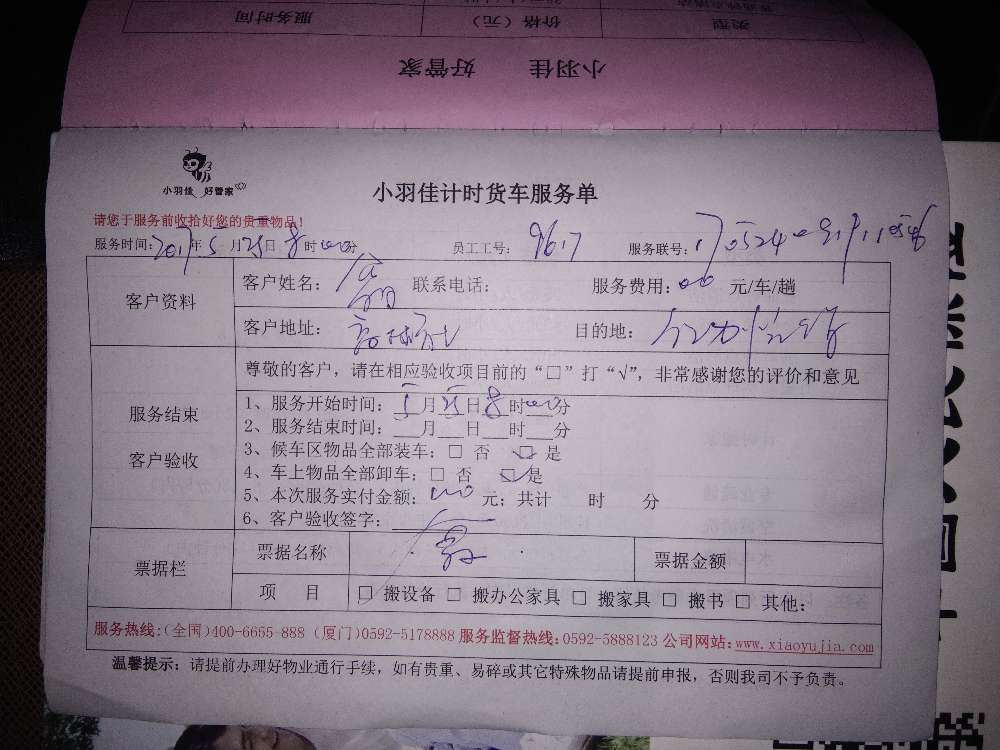 小羽佳 好管家
类型 价格（元） 服务时间
小羽佳 好管家
小羽佳计时货车服务单
请您于服务前收拾好您的贵重物品！
服务时间：2017年5月25日8时00分 员工工号：9617 服务联号：
客户资料
客户姓名： 联系电话： 服务费用： 元/车/趟
客户地址： 目的地：
服务结束
客户验收
尊敬的客户，请在相应验收项目前的“□”打“√”，非常感谢您的评价和意见
1、服务开始时间：5月25日8时00分
2、服务结束时间：___月___日___时___分
3、候车区物品全部装车：□ 否 ☑ 是
4、车上物品全部卸车：□ 否 ☑ 是
5、本次服务实付金额： 元；共计 时 分
6、客户验收签字：
票据栏
票据名称 票据金额
项 目 □ 搬设备 □ 搬办公家具 □ 搬家具 □ 搬书 □ 其他：
服务热线:(全国)400-6655-888 (厦门)0592-5178888 服务监督热线:0592-5888123 公司网站:www.xiaoyujia.com
温馨提示：请提前办理好物业通行手续，如有贵重、易碎或其它特殊物品请提前申报，否则我司不予负责。